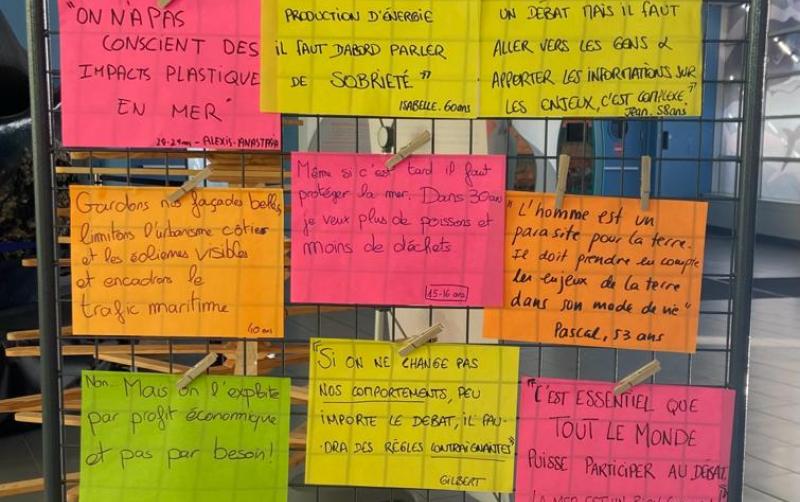 "ON N'A PAS
CONSCIENT DES
IMPACTS PLASTIQUE
EN MER"
ALEXIS-ANASTASIA
PRODUCTION D'ÉNERGIE
IL FAUT DABORD PARLER
DE SOBRIÉTÉ"
ISABELLE. 60ans
UN DÉBAT MAIS IL FAUT
ALLER VERS LES GENS &
APPORTER LES INFORMATIONS SUR
LES ENJEUX, C'EST COMPLEXE"
Jean. 58ans
Gardons nos façades belles,
limitons l'urbanisme côtier
et les éoliennes visibles
et encadrons le
trafic maritime
40 ans
Même si c'est tard il faut
protéger la mer. Dans 30 ans
je veux plus de poissons et
moins de déchets
15-16 ans
"L'homme est un
parasite pour la terre.
Il doit prendre en compte
les enjeux de la terre
dans son mode de vie"
Pascal, 53 ans
Non... Mais on l'exploite
par profit économique
et pas par besoin!
"SI ON NE CHANGE PAS
NOS COMPORTEMENTS, PEU
IMPORTE LE DEBAT, IL FAU-
DRA DES RÈGLES CONTRAIGNANTES"
GILBERT
"C'EST ESSENTIEL QUE
TOUT LE MONDE
PUISSE PARTICIPER AU DÉBAT
LA MER EST UN BIEN